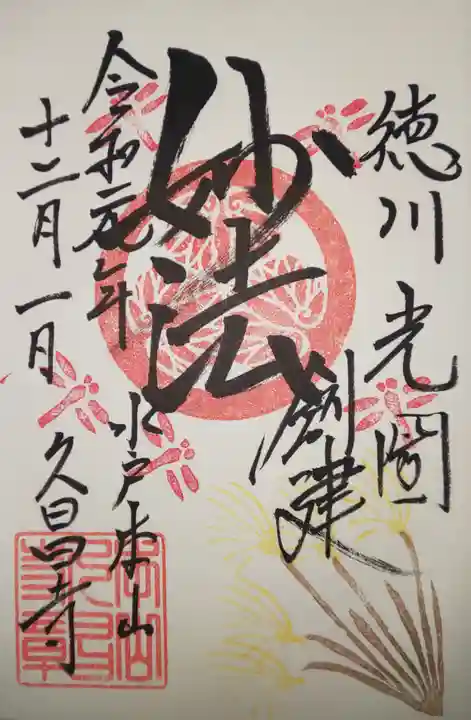 徳川光圀
創建
妙法
水戸本山
久昌寺
令和元年
十二月一日